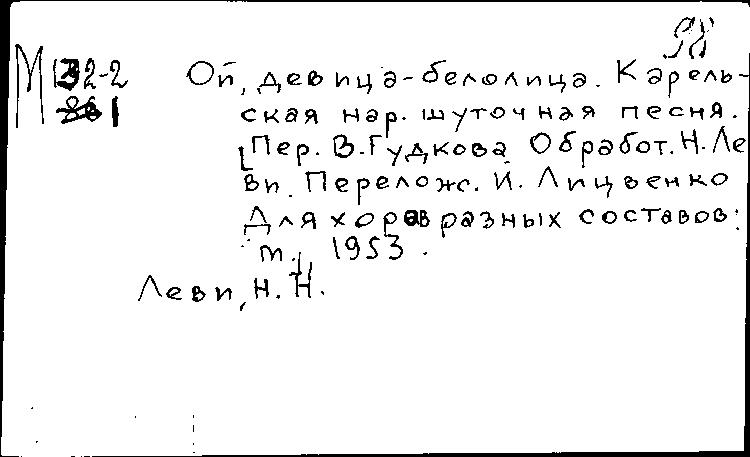 98
М 132-2 Ой, девица-белолица. Карель-
1 ская нар. шуточная песня.
[Пер. В. Гудкова Обработ. Н. Ле
ви. Перелож. И. Лицвенко
Для хоров разных составов:
м., 1953.
Леви, Н. Н.